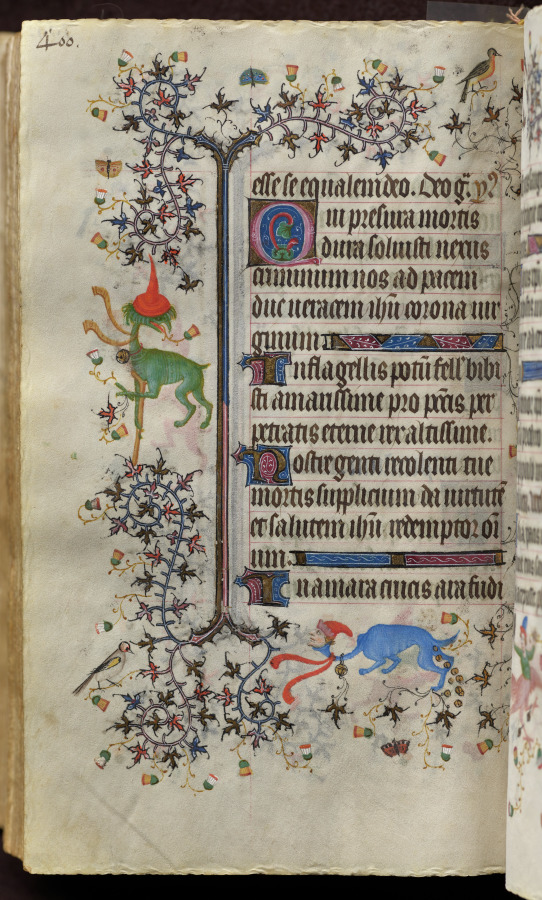 400.
esse se equalem deo. Deo gr̄. ỹ
Qui presura mortis
dura soluisti nexus
criminum nos ad pacem
duc ueracem ihũ corona uir
ginum
Inflagellis potũ fell' bibi
sti amarissime pro pctis per
petratis eterne rex altissime.
Nostre genti recolenti tue
mortis supplicium da uirtutẽ
et salutem ihũ redemptor oĩ
um.
In amara crucis ara fudi